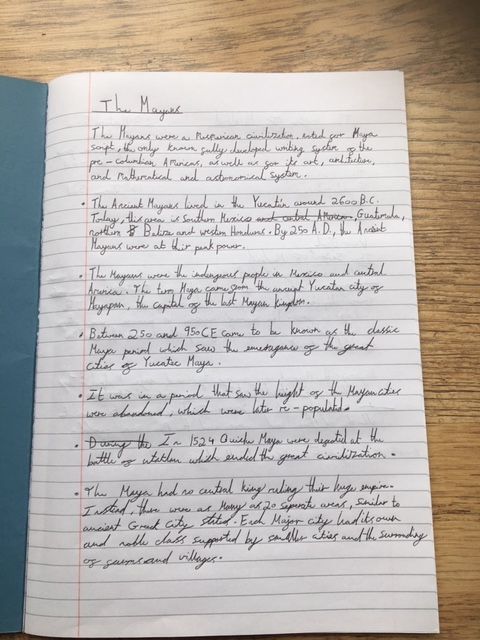 The Mayans
The Mayans were a civilization, noted for Maya
script, the only known fully developed writing system of the
pre-columbian Americas, as well as for its art,
and mathematical and astronomical system.
• The Ancient Mayans lived in the Yucatán around 2600 B.C.
Today, this area is southern Mexico and central American, Guatemala,
northern Belize and western Honduras. By 250 A.D., the Ancient
Mayans were at their peak power.
• The Mayans were the indengous people in Mexico and central
America. The Maya came from the ancient Yucatan city of
Mayapan, the capital of the last Mayan kingdom.
• Between 250 and 950 CE came to be known as the classic
Maya period which saw the of the great
cities of Yucatec Maya.
• It was in a period that saw the height of the Mayan cities
were abandoned, which were later re-populated.
• During the In 1524 Quiche Maya were degeated at the
battle of utatlan which ended the great civilization.
• The Maya had no central king ruling their huge empire.
Instead, there were as Many as 20 areas, similar to
ancient Greek city stated. Each Major city had its own
and noble class supported by smaller cities and the
of and villages.